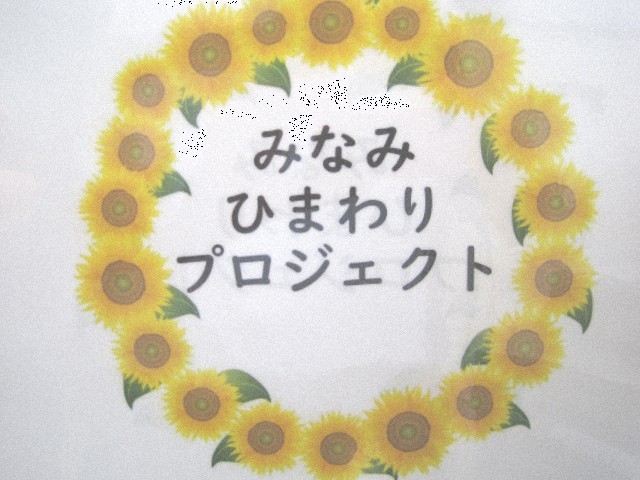 みなみ
ひまわり
プロジェクト